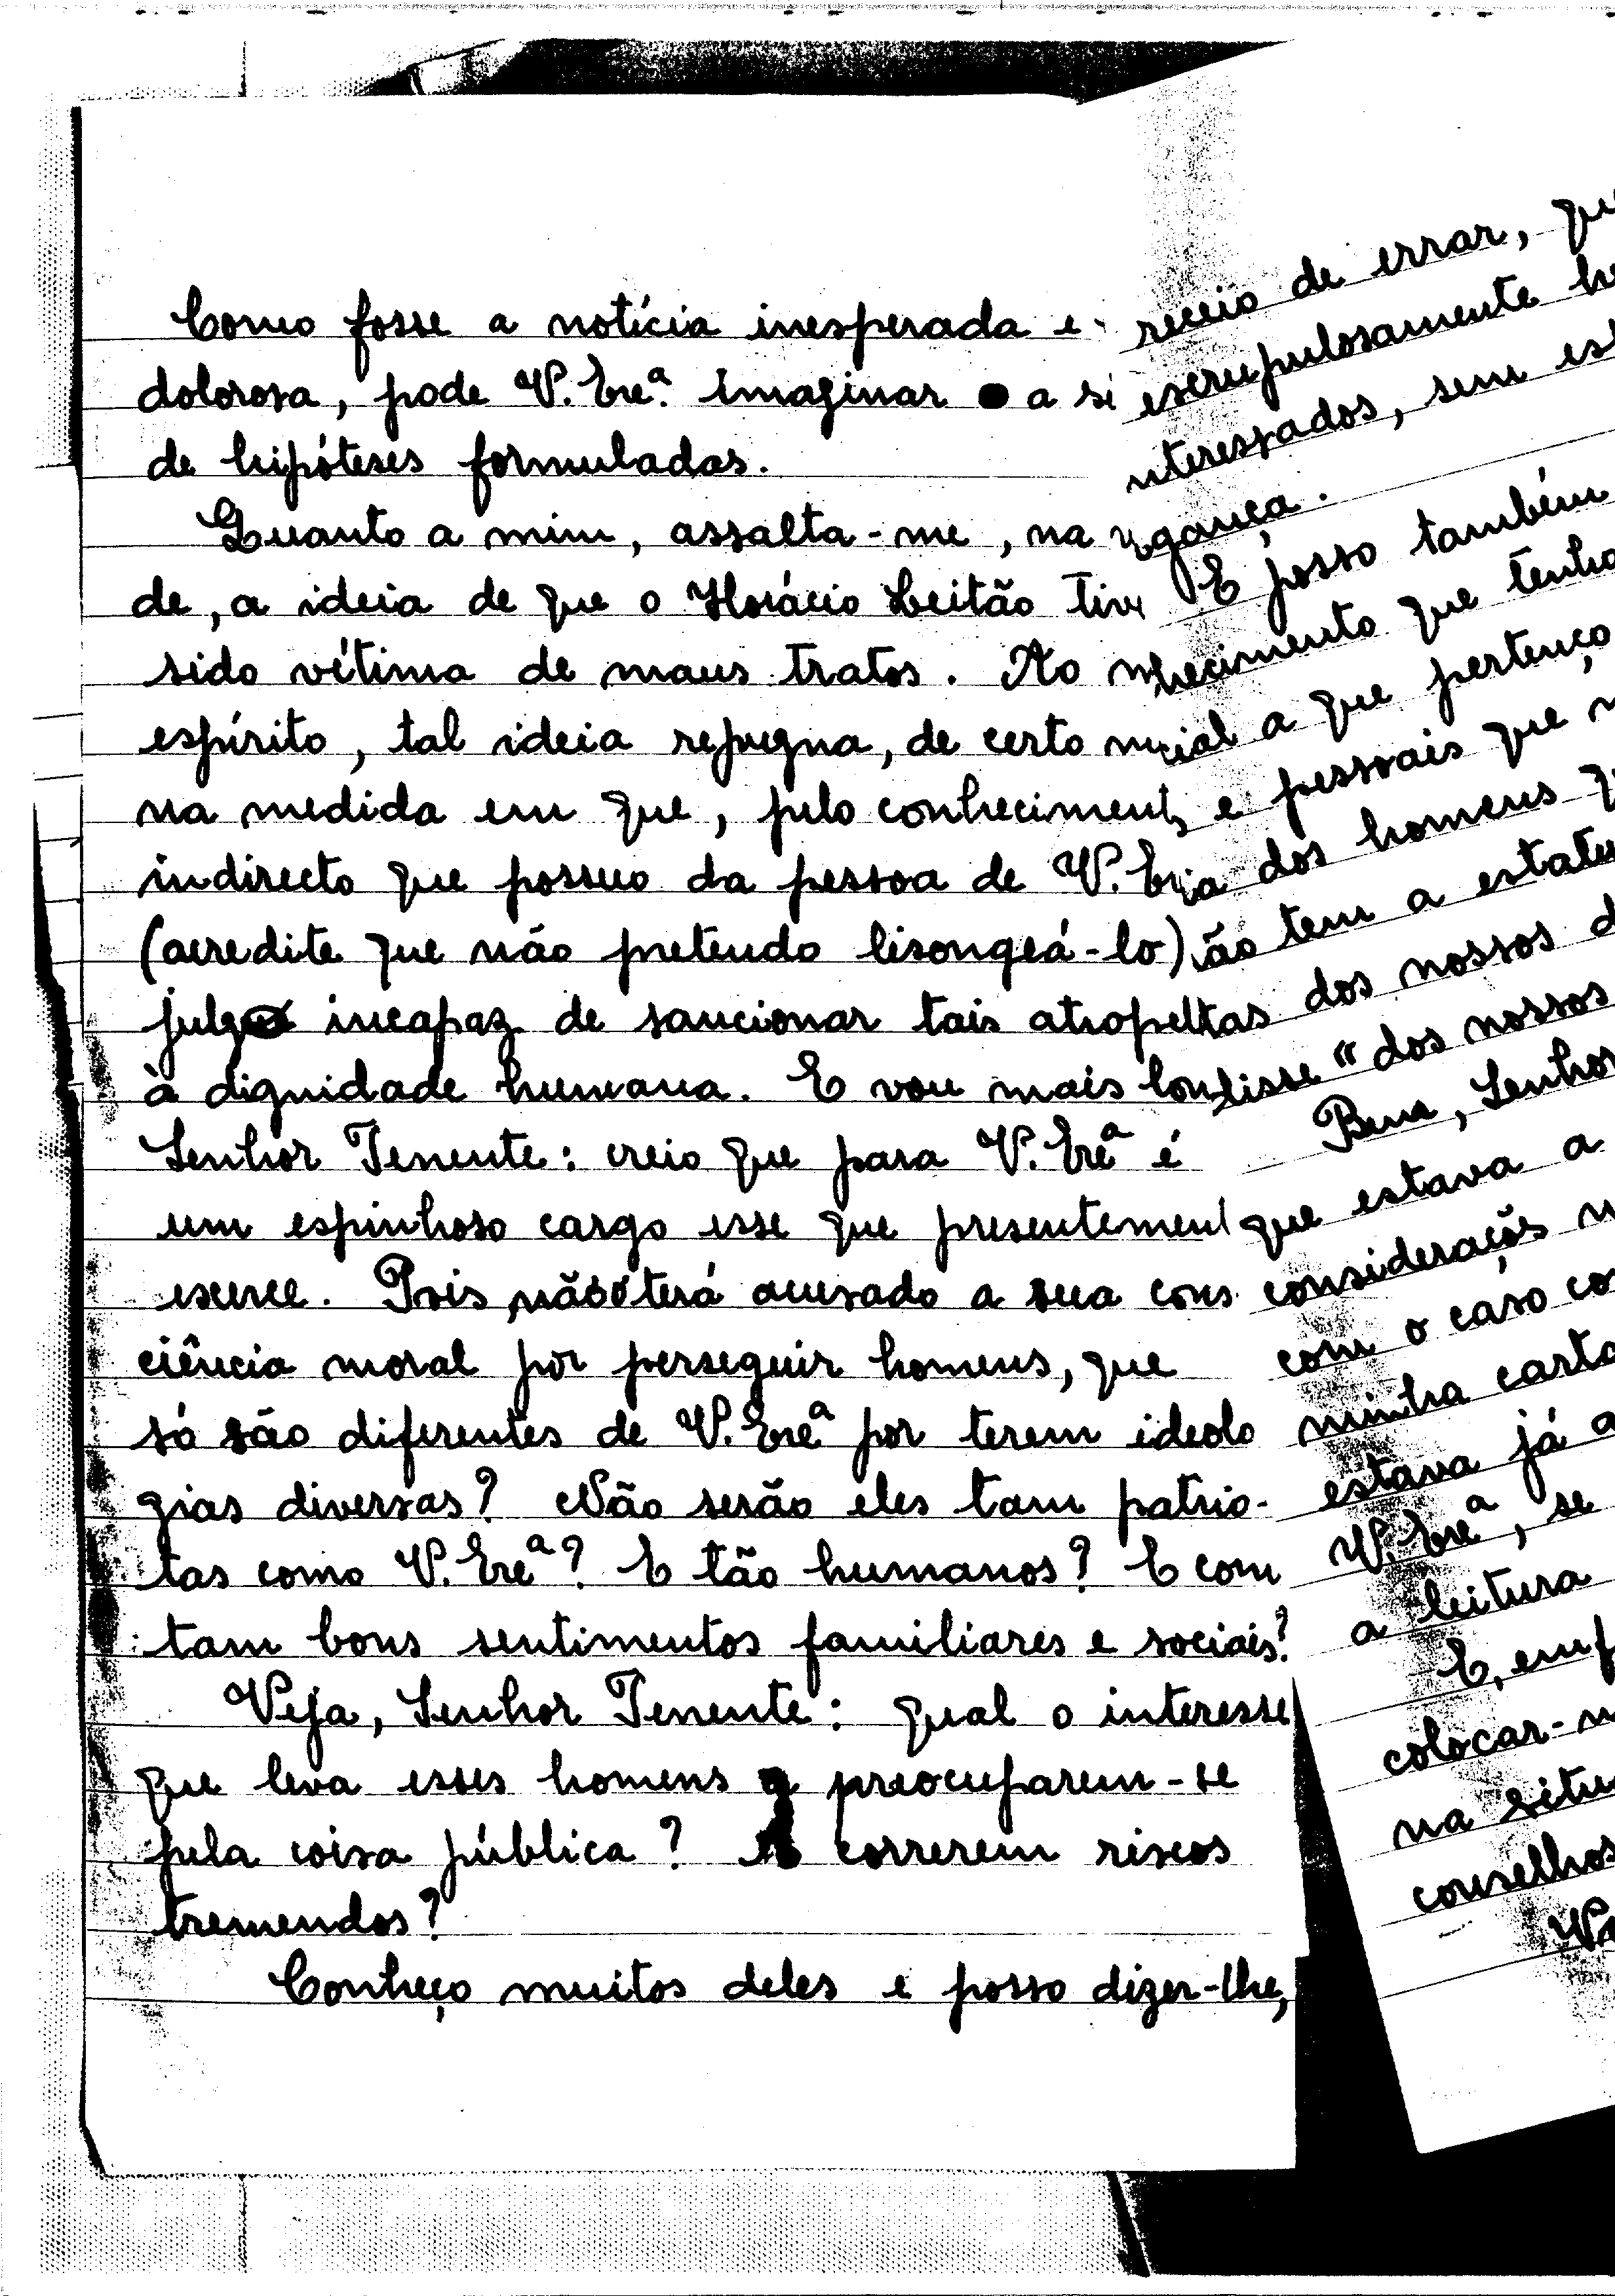 Como fosse a notícia inesperada e
dolorosa, pode V. Excª. imaginar a
de hipóteses formuladas.
Quanto a mim, assalta-me, na
de, a ideia de que o Horácio Leitão
sido vítima de maus tratos. Ao
espírito, tal ideia repugna, de certo
na medida em que, pelo
indirecto que possuo da pessoa de V.
(acredite que não pretendo lisongeá-lo)
julgo incapaz de sancionar tais
à dignidade humana. E vou mais
Senhor Tenente: creio que para V. Excª é
um espinhoso cargo esse que
exerce. Pois, não o terá acusado a sua cons
ciência moral por perseguir homens, que
só são diferentes de V. Excª por terem ideolo
gias diversas? Não serão eles tam patrio-
tas como V. Excª? E tão humanos? E com
tam bons sentimentos familiares e sociais?
Veja, Senhor Tenente: qual o interesse
que leva esses homens a preocuparem-se
pela coisa pública? A correrem riscos
tremendos?
Conheço muitos deles e posso dizer-lhe,
receio de errar,
escrupulosamente
sem
E posso também
que tenho
a que pertenço
e pessoais que
dos homens
tem a
dos nossos
"dos nossos
Bem, Senhor
que estava a
considerações
com o caso
minha carta
estava já a
V. Excª, se
a leitura
E,
na
conselhos